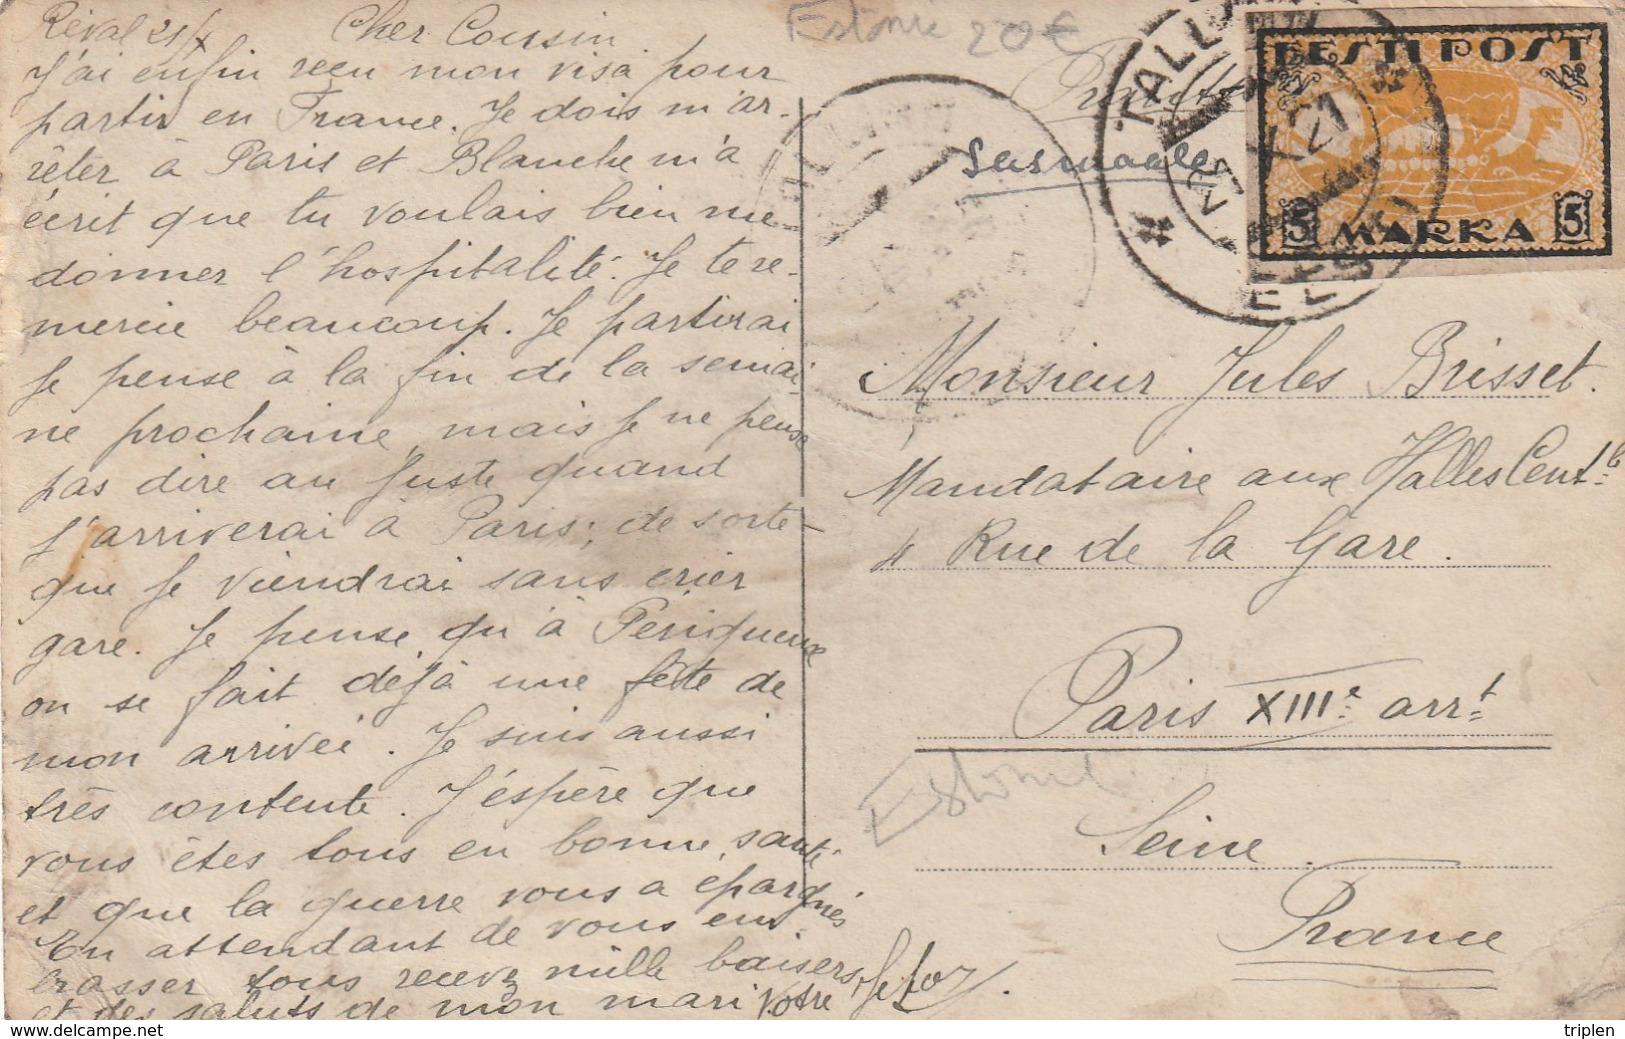 Réval 21/X Cher Cousin
J'ai enfin reçu mon visa pour
partir en France. Je dois m'ar-
rêter à Paris et Blanche m'a
écrit que tu voulais bien me
donner l'hospitalité. Je te re-
mercie beaucoup. Je partirai
je pense à la fin de la semai-
ne prochaine, mais je ne peux
pas dire au juste quand
j'arriverai à Paris; de sorte
que je viendrai sans crier
gare. Je pense qu'à Perigueux
on se fait déjà une fête de
mon arrivée. Je suis aussi
très contente. J'éspère que
vous êtes tous en bonne santé
et que la guerre vous a épargnés
En attendant de vous em
brasser tous recevez mille baisers
et des saluts de mon mari Votre
Estonie 20€
TALLINN
EESTI
EESTI POST
5 MARKA 5
Monsieur Jules Brisset.
Mandataire aux Halles Centles
4 Rue de la Gare.
Paris XIIIe arrt
Estonie
Seine.
France
© delcampe.net
triplen